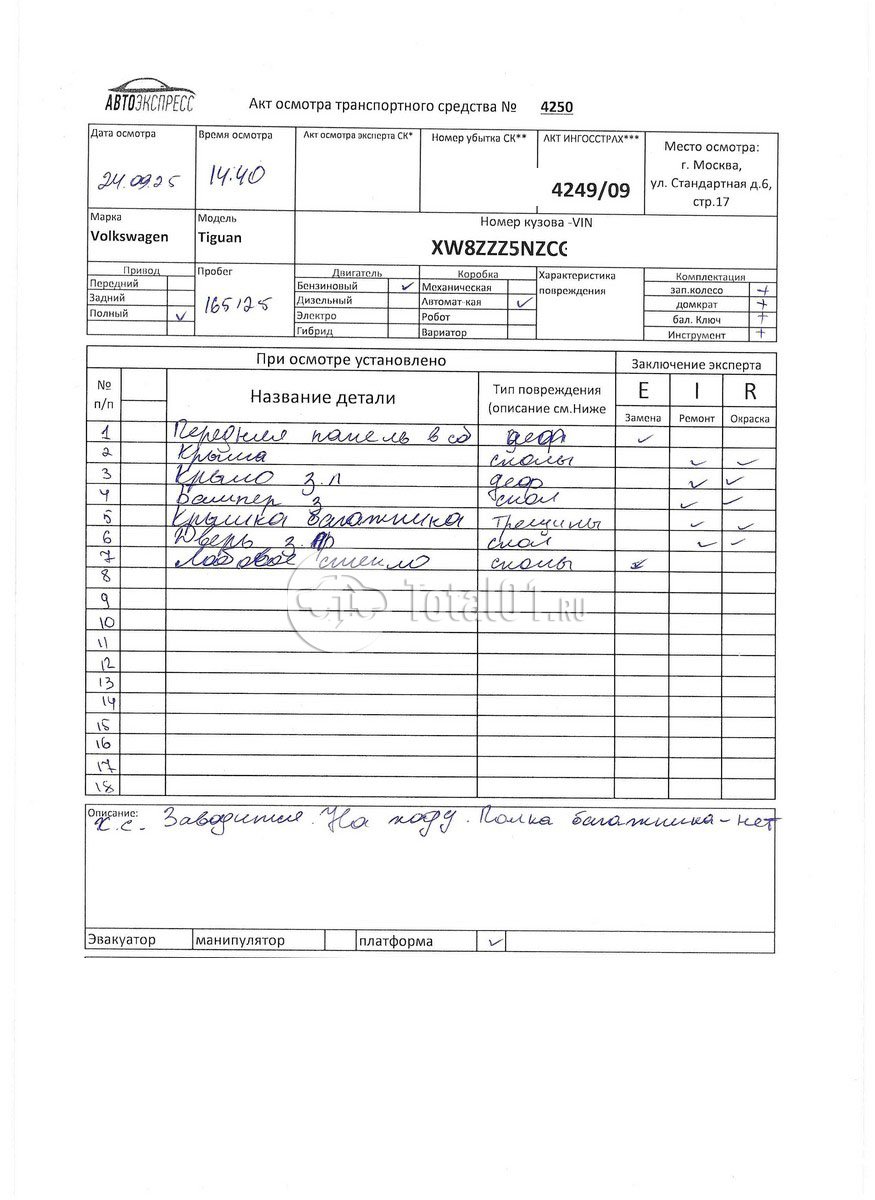 АВТОЭКСПРЕСС
Акт осмотра транспортного средства № 4250
Дата осмотра
24.09.25
Время осмотра
14.40
Акт осмотра эксперта СК*
Номер убытка СК**
АКТ ИНГОССТРАХ***
4249/09
Место осмотра:
г. Москва,
ул. Стандартная д.6,
стр.17
Марка
Volkswagen
Модель
Tiguan
Номер кузова -VIN
XW8ZZZ5NZCG
Привод
Передний
Задний
Полный ✓
Пробег
165125
Двигатель
Бензиновый ✓
Дизельный
Электро
Гибрид
Коробка
Механическая
Автомат-кая ✓
Робот
Вариатор
Характеристика
повреждения
Комплектация
зап.колесо +
домкрат +
бал. Ключ +
Инструмент +
При осмотре установлено
Заключение эксперта
№
п/п
Название детали
Тип повреждения
(описание см.Ниже
E I R
Замена Ремонт Окраска
1 Передняя панель в сб деф ✓
2 Крыша сколы ✓ ✓
3 Крыло з.л деф ✓ ✓
4 Бампер з скол ✓ ✓
5 Крышка багажника трещины ✓ ✓
6 Дверь з.пр скол ✓ ✓
7 Лобовое стекло сколы ✓
8
9
10
11
12
13
14
15
16
17
18
Total01.RU
Описание:
х.с. Заводится. На ходу. Полка багажника - нет
Эвакуатор манипулятор платформа ✓